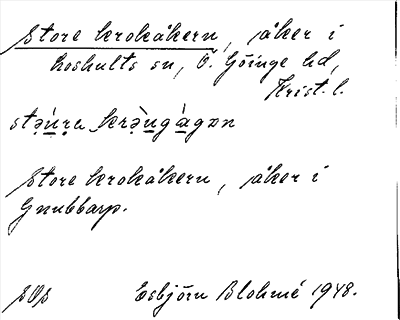 Store krokåkern, åker i
Loshults sn, Ö. Göinge hd,
Krist. l.
Store krokåkern, åker i
Gnubbarp.
SOS Esbjörn Blohmé 1948.